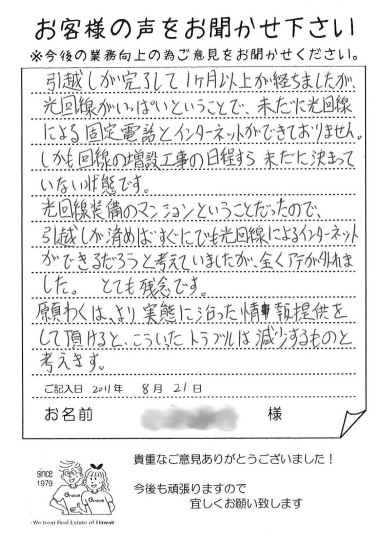 お客様の声をお聞かせ下さい
※今後の業務向上の為ご意見をお聞かせください。
引越しが完了して1ヶ月以上が経ちましたが、
光回線がいっぱいということで、未だに光回線
による固定電話とインターネットができておりません。
しかも回線の増設工事の日程すら未だに決まって
いない状態です。
光回線装備のマンションということだったので、
引越しが済めばすぐにでも光回線によるインターネット
ができるだろうと考えていましたが、全くアテが外れま
した。 とても残念です。
願わくは、より実態に沿った情報提供を
して頂けると、こういたトラブルは減少するものと
考えます。
ご記入日 2011年 8月21日
お名前 様
貴重なご意見ありがとうございました!
今後も頑張りますので
宜しくお願い致します
since
1979
Grace
Grace
We treat Real Estate of Hawaii